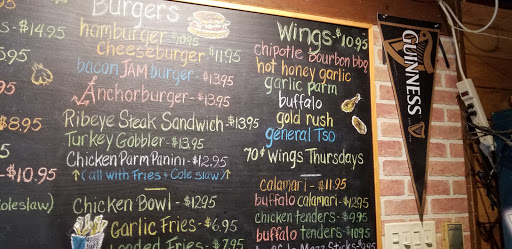 Burgers
hamburger - $10.95
cheeseburger - $11.95
bacon JAM burger - $13.95
Anchorburger - $13.95
Ribeye Steak Sandwich - $13.95
Turkey Gobbler - $13.95
Chicken Parm Panini - $12.95
↑(all with Fries + Cole slaw)↑
Chicken Bowl - $12.95
Garlic Fries - $6.95
Loaded Fries - $7.95
$14.95
$8.95
$10.95
coleslaw)
Wings - $10.95
chipotle bourbon bbq
hot honey garlic
garlic parm
buffalo
gold rush
general Tso
70¢ Wings Thursdays
calamari - $11.95
buffalo calamari - $12.95
chicken tenders - $9.95
buffalo tenders - $10.95
Mozz Sticks
GUINNESS